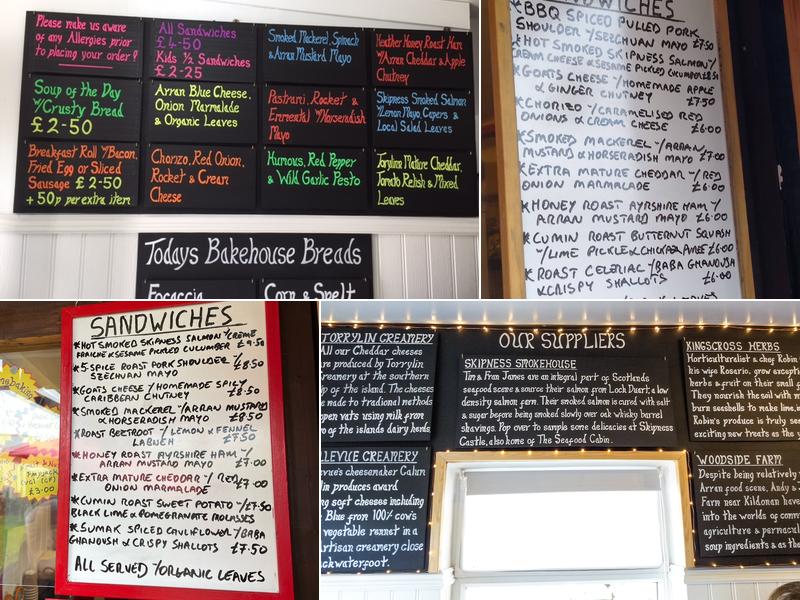 Please make us aware
of any Allergies prior
to placing your order!
All Sandwiches
£4-50
Kids 1/2 Sandwiches
£2-25
Smoked Mackerel, Spinach
& Arran Mustard Mayo
Heather Honey Roast Ham
W/Arran Cheddar & Apple
Chutney
Soup of the Day
W/Crusty Bread
£2-50
Arran Blue Cheese,
Onion Marmalade
& Organic Leaves
Pastrami, Rocket &
Emmental W/Horseradish
Mayo
Skipness Smoked Salmon
W/Lemon Mayo, Capers &
Local Salad Leaves
Breakfast Roll W/Bacon,
Fried Egg or Sliced
Sausage £2-50
+50p per extra item
Chorizo, Red Onion,
Rocket & Cream
Cheese
Humous, Red Pepper
& Wild Garlic Pesto
Torrylinn Mature Cheddar,
Tomato Relish & Mixed
Leaves
Todays Bakehouse Breads
Focaccia
Corn & Spelt
SANDWICHES
*BBQ SPICED PULLED PORK
SHOULDER Y/SEZCHUAN MAYO £7.50
*HOT SMOKED SKIPNESS SALMON Y/
CREAM CHEESE & SESAME PICKLED CUCUMBER £8.50
*GOATS CHEESE Y/HOMEMADE APPLE
& GINGER CHUTNEY £7.50
*CHORIZO Y/CARAMELISED RED
ONIONS & CREAM CHEESE £6.00
*SMOKED MACKEREL Y/ARRAN
MUSTARD & HORSERADISH MAYO £7.00
*EXTRA MATURE CHEDDAR Y/RED
ONION MARMALADE £6.00
*HONEY ROAST AYRSHIRE HAM Y/
ARRAN MUSTARD MAYO £6.00
*CUMIN ROAST BUTTERNUT SQUASH
Y/LIME PICKLE & CHICKPEA PUREE £6.00
*ROAST CELERIAC Y/BABA GHANOUSH
& CRISPY SHALLOTS £6.00
SANDWICHES
*HOT SMOKED SKIPNESS SALMON Y/CRÈME
FRAICHE & SESAME PICKLED CUCUMBER £9.50
*5-SPICE ROAST PORK SHOULDER Y/
SZECHUAN MAYO £8.50
*GOATS CHEESE Y/HOMEMADE SPICY
CARIBBEAN CHUTNEY £8.50
*SMOKED MACKEREL Y/ARRAN MUSTARD
& HORSERADISH MAYO £8.50
*ROAST BEETROOT Y/LEMON & FENNEL
LABNEH £7.50
*HONEY ROAST AYRSHIRE HAM Y/
ARRAN MUSTARD MAYO £7.00
*EXTRA MATURE CHEDDAR Y/RED
ONION MARMALADE £7.00
*CUMIN ROAST SWEET POTATO Y/ £7.50
BLACK LIME & POMEGRANATE MOLASSES
*SUMAK SPICED CAULIFLOWER Y/BABA
GHANOUSH & CRISPY SHALLOTS £7.50
ALL SERVED Y/ORGANIC LEAVES
£3.00
OUR SUPPLIERS
TORRYLIN CREAMERY
All our Cheddar cheeses
are produced by Torrylin
Creamery at the southern
tip of the island. The cheeses
are made to tradional methods
open vats using milk from
of the islands dairy herds
SKIPNESS SMOKEHOUSE
Tim & Fran James are an integral part of Scotlands
seafood scene & source their salmon from Loch Duart, a low
density salmon farm. Their smoked salmon is cured with salt
& sugar before being smoked slowly over oak whisky barrel
shavings. Pop over to sample some delicacies at Skipness
Castle, also home of The Seafood Cabin.
KINGSCROSS HERBS
Horticulturalist & chef Robin
his wife Rosario, grow except
herbs & fruit on their small
They nourish the soil with
burn seashells to make lime,
Robin's produce is truly
exciting new treats as the
LLEVUE CREAMERY
vue's cheesemaker Calum
lin produces award
ng soft cheeses including
Blue from 100% cow's
vegetable rennet in a
artisan creamery close
ckwaterfoot.
WOODSIDE FARM
Despite being relatively
Arran food scene, Andy &
Farm near Kildonan have
into the worlds of
agriculture & permacul
soup ingredients & as the